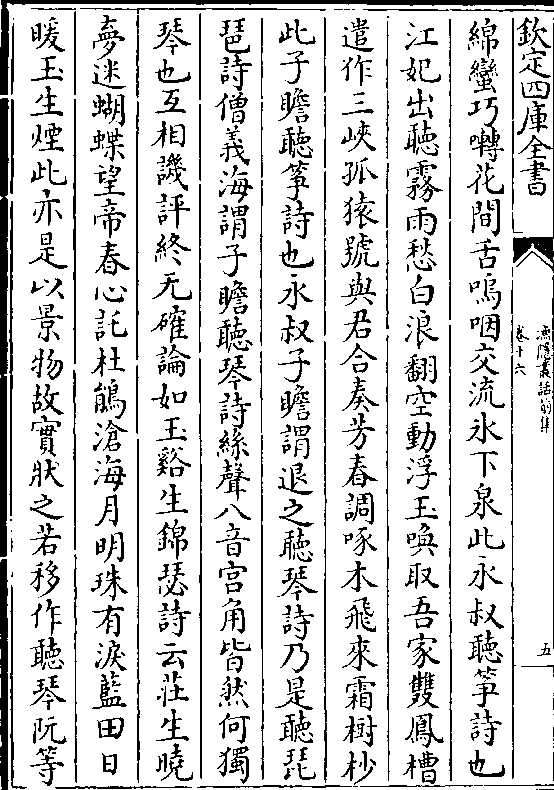 欽定四庫全書
漁隱叢話前集
卷十六
五
綿蠻巧囀花間舌嗚咽交流氷下泉此永叔聽箏詩也
江妃出聽霧雨愁白浪翻空動浮玉喚取吾家雙鳳槽
遣作三峽孤猿號與君合奏芳春調啄木飛來霜樹杪
此子瞻聽箏詩也永叔子瞻謂退之聽琴詩乃是聽琵
琶詩僧義海謂子瞻聽琴詩絲聲八音宫角皆然何獨
琴也互相譏評終无確論如玉谿生錦瑟詩云莊生曉
夢迷蝴蝶望帝春心託杜鵑滄海月明珠有淚藍田日
暖玉生煙此亦是以景物故實狀之若移作聽琴阮等